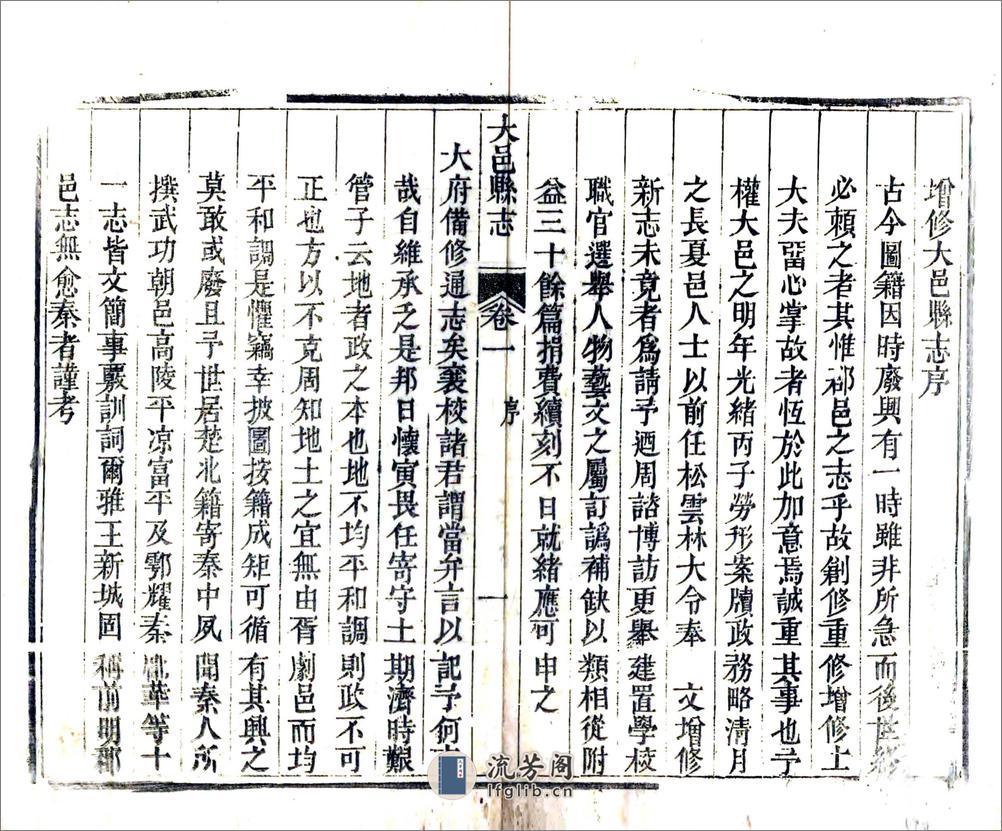 增修大邑縣志序
古今圖籍因時廢興有一時雖非所急而後世
必賴之者其惟郡邑之志乎故創修重修增修士
大夫畱心掌故者恆於此加意焉誠重其事也予
權大邑之明年光緒丙子勞形案牘政務略淸月
之長夏邑人士以前任松雲林大令奉 文增修
新志未竟者爲請予迺周諮博訪更舉建置學校
職官選舉人物藝文之屬訂譌補缺以類相從附
益三十餘篇捐費續刻不日就緒應可申之
大邑縣志 卷一 序 一
大府備修通志矣襄校諸君謂當弁言以記予何
哉自維承乏是邦日懷寅畏任寄守土期濟時艱
管子云地者政之本也地不均平和調則政不可
正也方以不克周知地土之宜無由胥劇邑而均
平和調是懼竊幸披圖按籍成矩可循有其興之
莫敢或廢且予世居楚北籍寄秦中夙聞秦人所
撰武功朝邑高陵平凉富平及鄠耀秦華等十
一志皆文簡事覈訓詞爾雅王新城固稱前明郡
邑志無愈秦者謹考
流芳阁
lfglib.cn